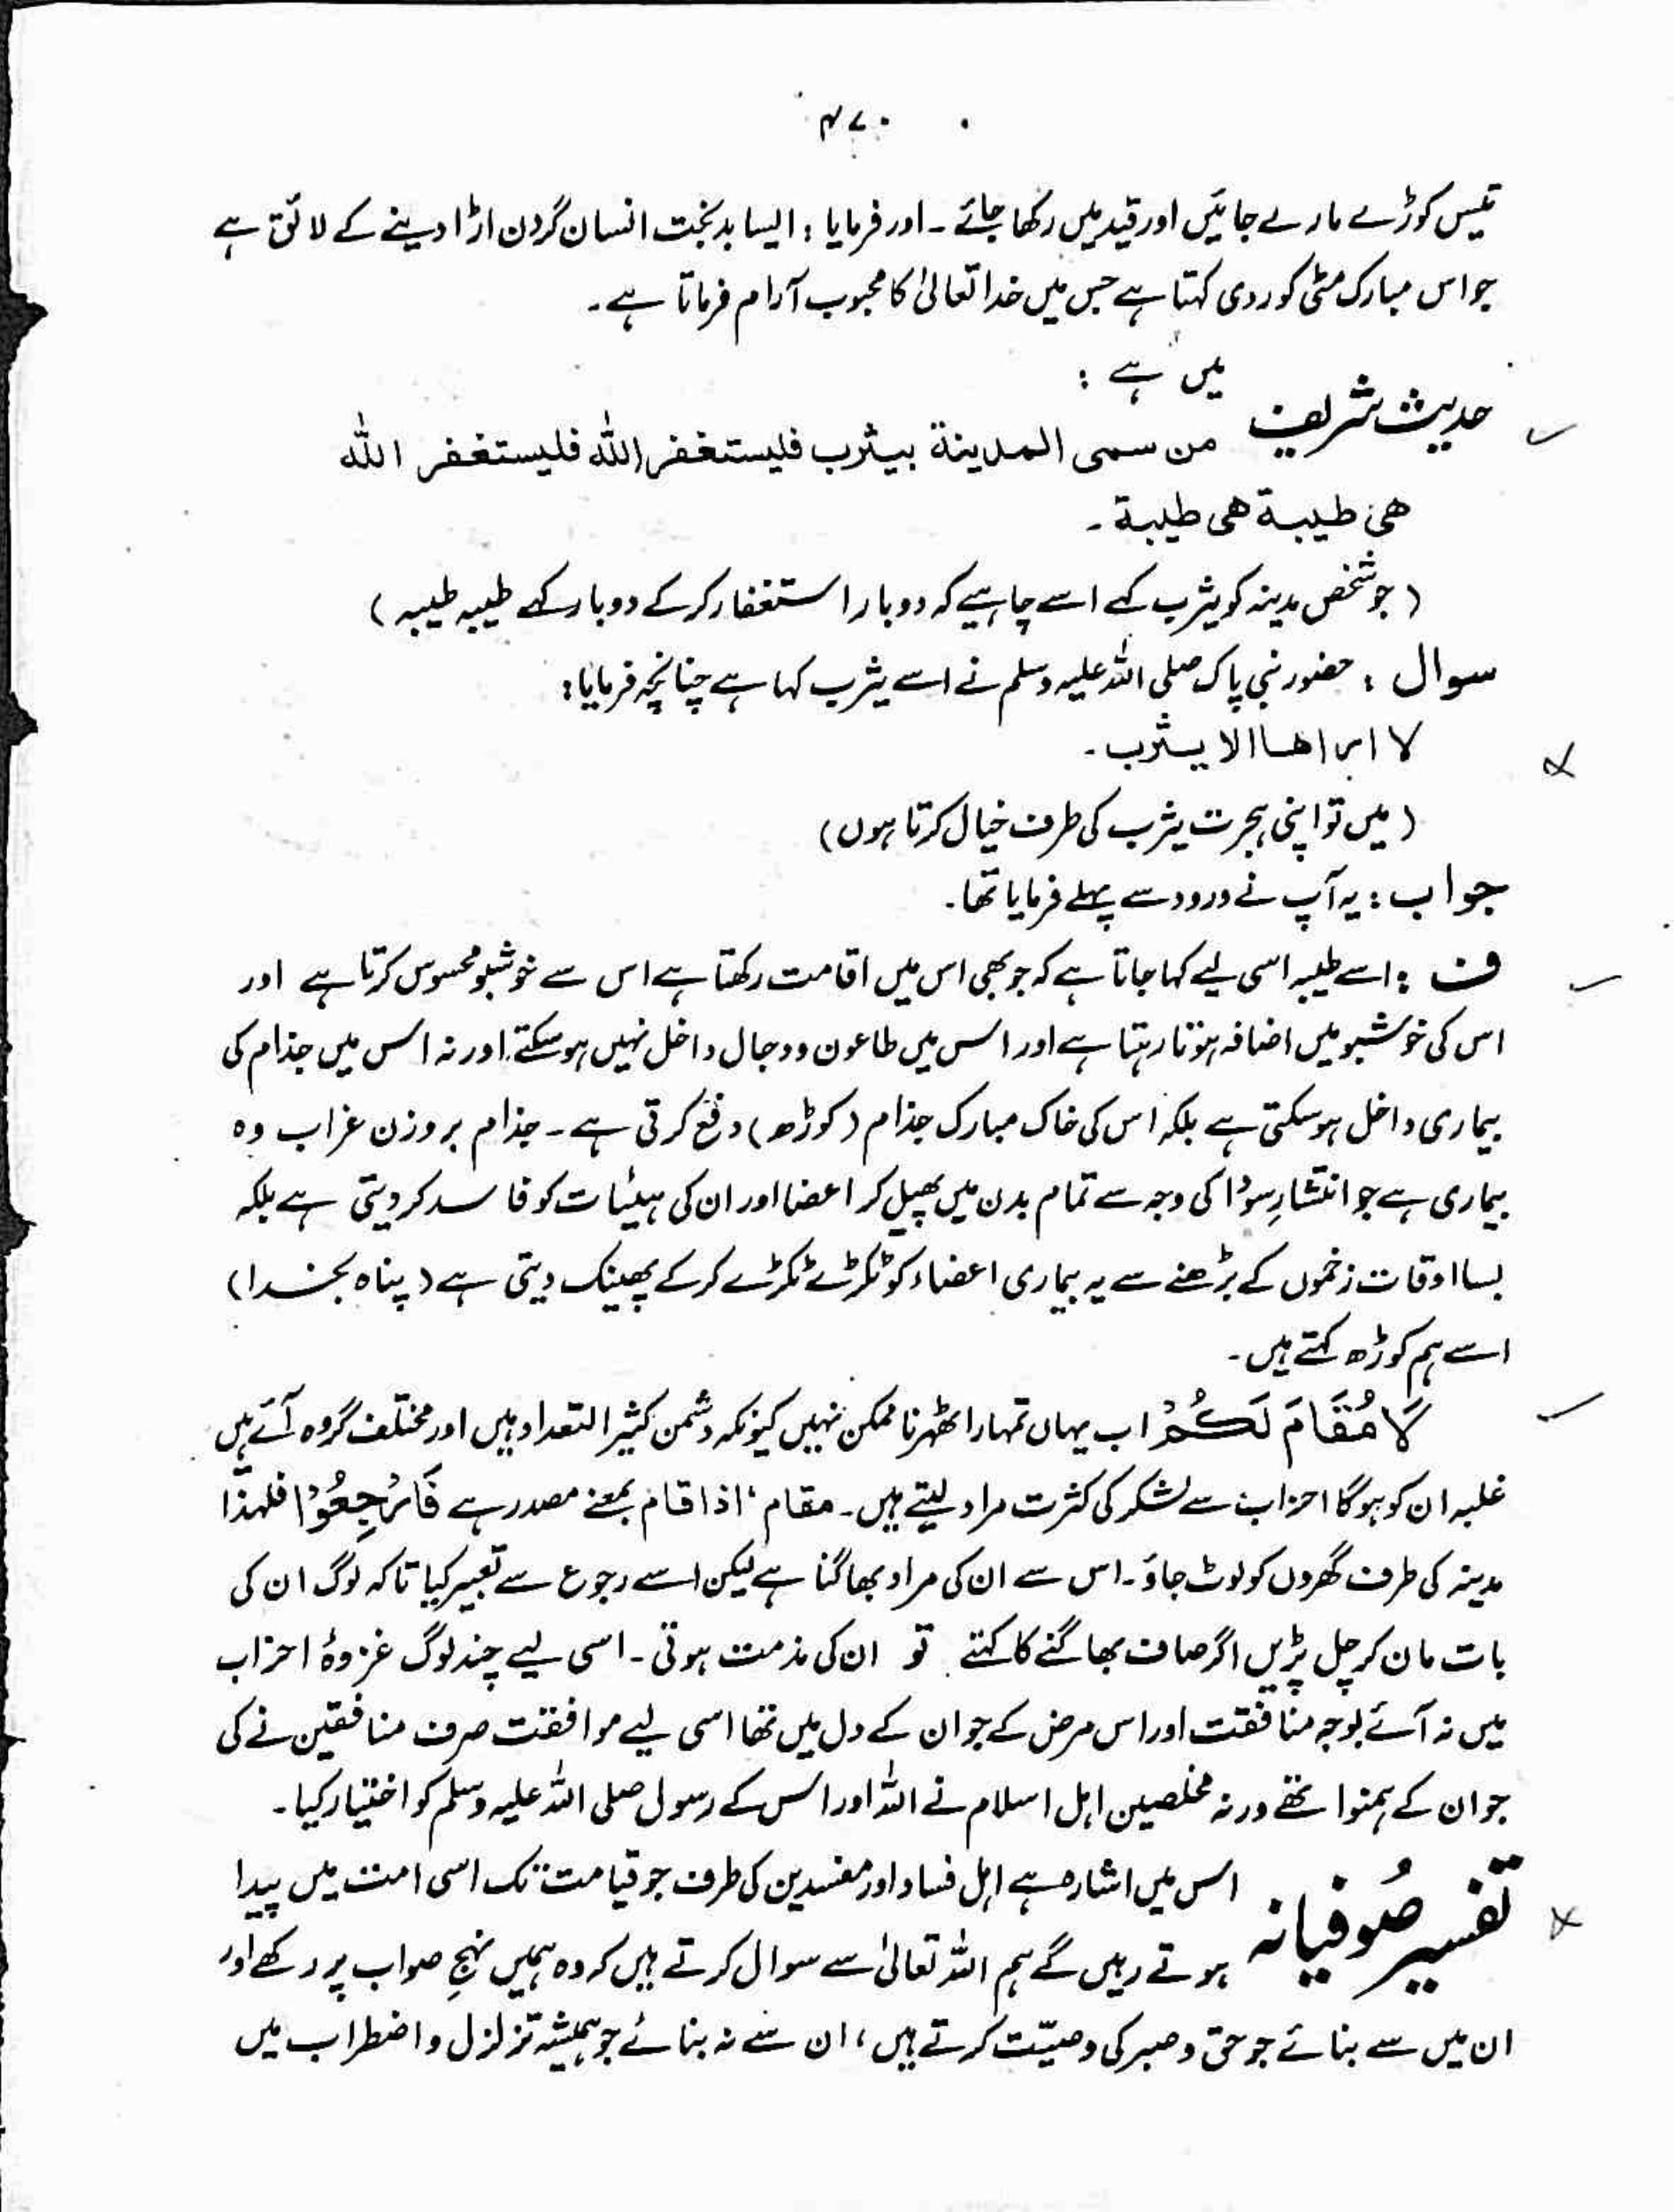 ۴۷۰
تیس کوڑے مارے جائیں اور قید میں رکھا جائے ۔ اور فرمایا : ایسا بدبخت انسان گردن اڑا دینے کے لائق ہے
جو اس مبارک مٹی کو ردی کہتا ہے جس میں خدا تعالیٰ کا محبوب آرام فرماتا ہے ۔
حدیث شریف میں ہے :
من سمی المدینة بیثرب فلیستغفر اللہ فلیستغفر اللہ
ھی طیبة ھی طیبة ۔
( جو شخص مدینہ کو یثرب کہے اسے چاہیے کہ دو بار استغفار کر کے دو بار کہے طیبہ طیبہ )
سوال : حضور نبی پاک صلی اللہ علیہ وسلم نے اسے یثرب کہا ہے چنانچہ فرمایا :
لا اراھا الا یثرب ۔
( میں تو اپنی ہجرت یثرب کی طرف خیال کرتا ہوں )
جواب : یہ آپ نے ورود سے پہلے فرمایا تھا ۔
ف : اسے طیبہ اسی لیے کہا جاتا ہے کہ جو بھی اس میں اقامت رکھتا ہے اس سے خوشبو محسوس کرتا ہے اور
اس کی خوشبو میں اضافہ ہوتا رہتا ہے اور اس میں طاعون و دجال داخل نہیں ہو سکتے اور نہ اس میں جذام کی
بیماری داخل ہو سکتی ہے بلکہ اس کی خاک مبارک جذام ( کوڑھ ) دفع کرتی ہے ۔ جذام بروزن غراب وہ
بیماری ہے جو انتشارِ سودا کی وجہ سے تمام بدن میں پھیل کر اعضا اور ان کی ہیئات کو فاسد کر دیتی ہے بلکہ
بسا اوقات زخموں کے بڑھنے سے یہ بیماری اعضاء کو ٹکڑے ٹکڑے کر کے پھینک دیتی ہے ( پناہ بخدا )
اسے ہم کوڑھ کہتے ہیں ۔
لَا مُقَامَ لَکُمْ اب یہاں تمہارا ٹھہرنا ممکن نہیں کیونکہ دشمن کثیر التعداد ہیں اور مختلف گروہ آئے ہیں
غلبہ ان کو ہوگا احزاب سے لشکر کی کثرت مراد لیتے ہیں ۔ مقام ، اذا قام بمعنے مصدر ہے فَارْجِعُوْا فلہٰذا
مدینہ کی طرف گھروں کو لوٹ جاؤ ۔ اس سے ان کی مراد بھاگنا ہے لیکن اسے رجوع سے تعبیر کیا تاکہ لوگ ان کی
بات مان کر چل پڑیں اگر صاف بھاگنے کا کہتے تو ان کی مذمت ہوتی ۔ اسی لیے چند لوگ غزوۂ احزاب
میں نہ آئے بوجہ منافقت اور اس مرض کے جو ان کے دل میں تھا اسی لیے موافقت صرف منافقین نے کی
جو ان کے ہمنوا تھے ورنہ مخلصین اہل اسلام نے اللہ اور اس کے رسول صلی اللہ علیہ وسلم کو اختیار کیا ۔
تفسیر صُوفیانہ اس میں اشارہ ہے اہل فساد اور مفسدین کی طرف جو قیامت تک اسی امت میں پیدا
ہوتے رہیں گے ہم اللہ تعالیٰ سے سوال کرتے ہیں کہ وہ ہمیں نہجِ صواب پر رکھے اور
ان میں سے بنائے جو حق و صبر کی وصیّت کرتے ہیں ، ان سے نہ بنائے جو ہمیشہ تزلزل و اضطراب میں